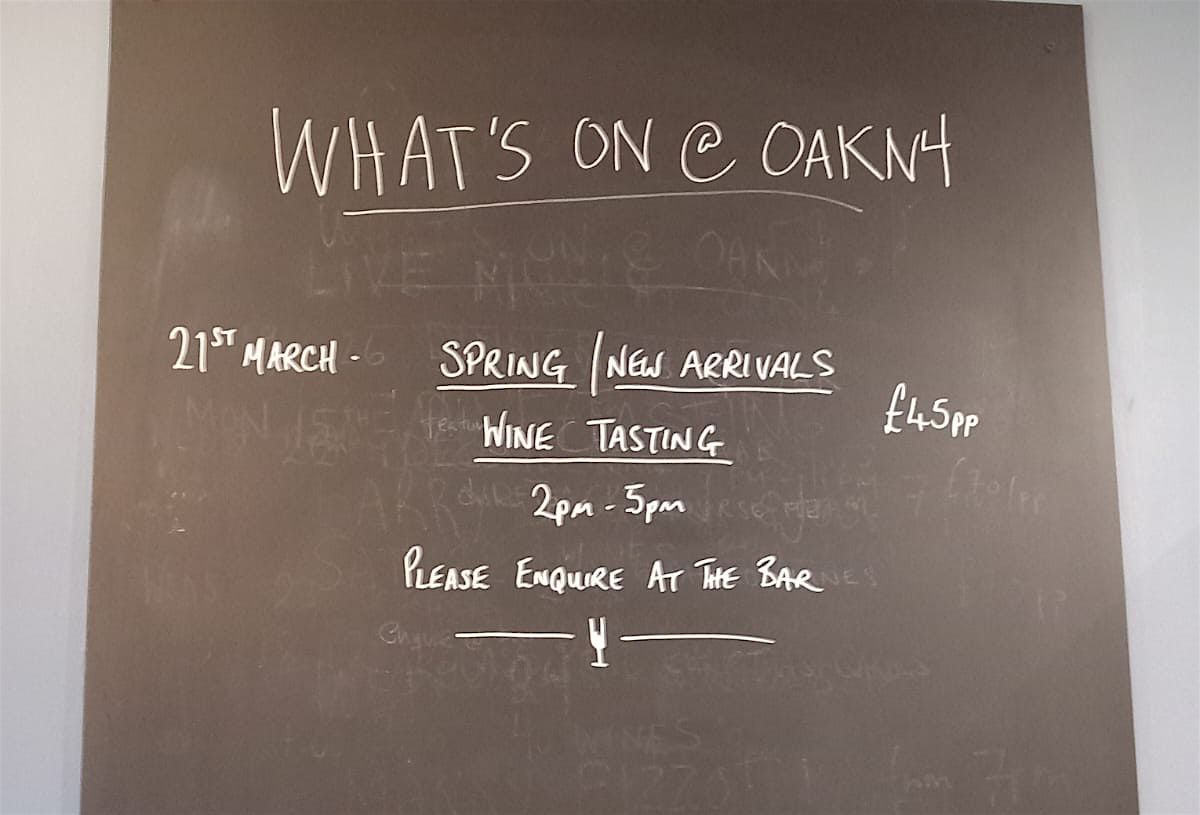 WHAT'S ON @ OAKN4
21ST MARCH - SPRING / NEW ARRIVALS
WINE TASTING
£45pp
2pm - 5pm
PLEASE ENQUIRE AT THE BAR